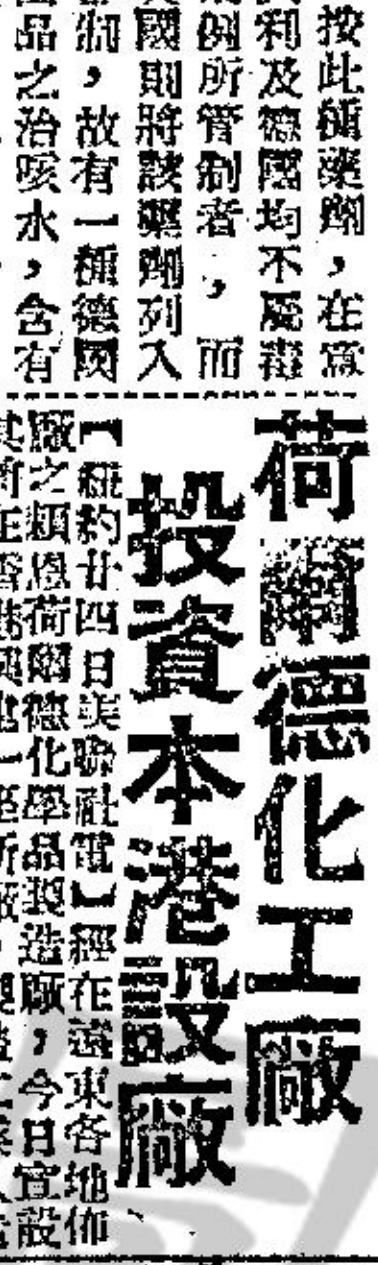 按此種藥劑，在意
利及德國均不屬毒
例所管制者，而
國則將該藥劑列入
故有一種德國
品之治咳水，含有
荷爾德化工廠
投資本港設廠
【紐約廿四日美聯社電】經在遠東各地佈
廠之賴恩荷爾德化學品製造廠，今日宣設